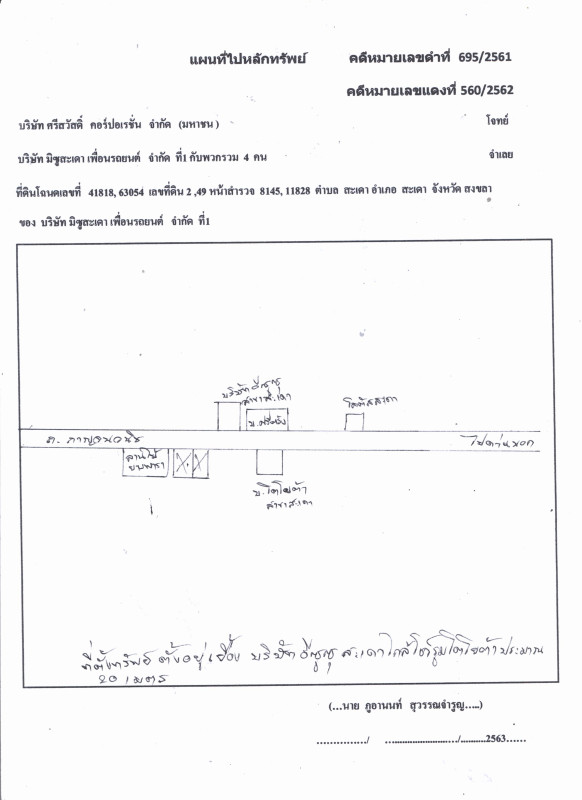 แผนที่ไปหลักทรัพย์ คดีหมายเลขดำที่ 695/2561
คดีหมายเลขแดงที่ 560/2562
บริษัท ศรีสวัสดิ์ คอร์ปอเรชั่น จำกัด (มหาชน) โจทย์
บริษัท มิซูสะเดา เพื่อนรถยนต์ จำกัด ที่1 กับพวกรวม 4 คน จำเลย
ที่ดินโฉนดเลขที่ 41818, 63054 เลขที่ดิน 2 ,49 หน้าสำรวจ 8145, 11828 ตำบล สะเดา อำเภอ สะเดา จังหวัด สงขลา
ของ บริษัท มิซูสะเดา เพื่อนรถยนต์ จำกัด ที่1
บริษัท อีซูซุ
สาขาสะเดา
โลตัสสะเดา
ถ. กาญจนวนิช
ไปด่านนอก
ลานไม้
ยางพารา
บ.โตโยต้า
สาขาสะเดา
ที่ตั้งทรัพย์ ตั้งอยู่ เยื้อง บริษัท อีซูซุ สะเดา ใกล้โชว์รูมโตโยต้า ประมาณ
20 เมตร
(…นาย ภูอานนท์ สุวรรณจำรูญ…..)
……………/ ….......................…/..........2563……